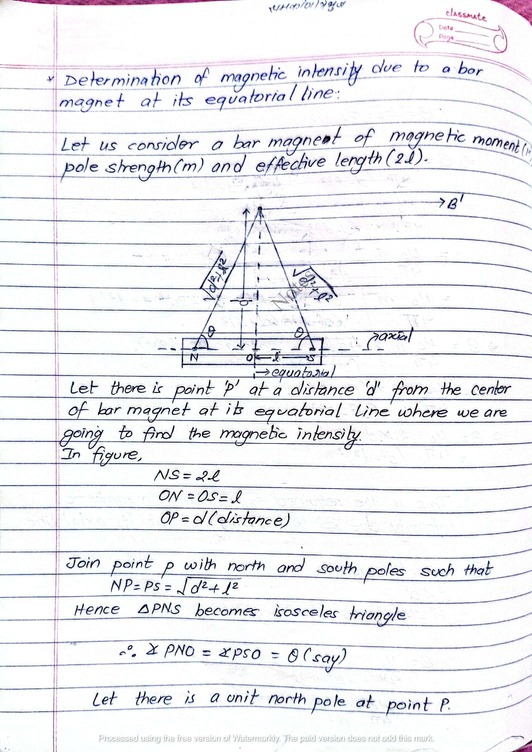 classmate
Date
Page
* Determination of magnetic intensity due to a bar
magnet at its equatorial line:
Let us consider a bar magneot of magnetic moment
pole strength(m) and effective length (2l).
B'
√d²+l²
√d²+l²
θ
θ
axial
N
O
l
S
equatorial
Let there is point 'p' at a distance 'd' from the center
of bar magnet at its equatorial line where we are
going to find the magnetic intensity.
In figure,
NS = 2l
ON = OS = l
OP = d (distance)
Join point p with north and south poles such that
NP = PS = √d²+l²
Hence ΔPNS becomes isosceles triangle
∴ ∡ PNO = ∡ PSO = θ (say)
Let there is a unit north pole at point P.
Processed using the free version of Watermarkly. The paid version does not add this mark.